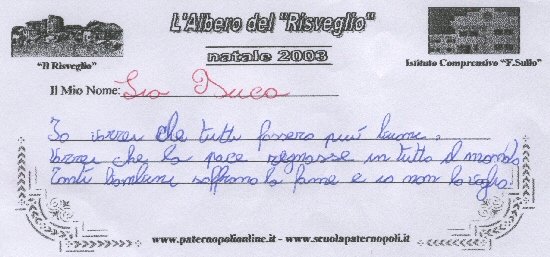 L'Albero del "Risveglio"
natale 2003
"Il Risveglio"
Istituto Comprensivo "F.Sullo"
Il Mio Nome: Lia Duca
Io vorrei che tutti fossero più buoni.
Vorrei che la pace regnasse in tutto il mondo
Tanti bambini soffrono la fame e io non lo voglio.
www.paternopolionline.it - www.scuolapaternopoli.it